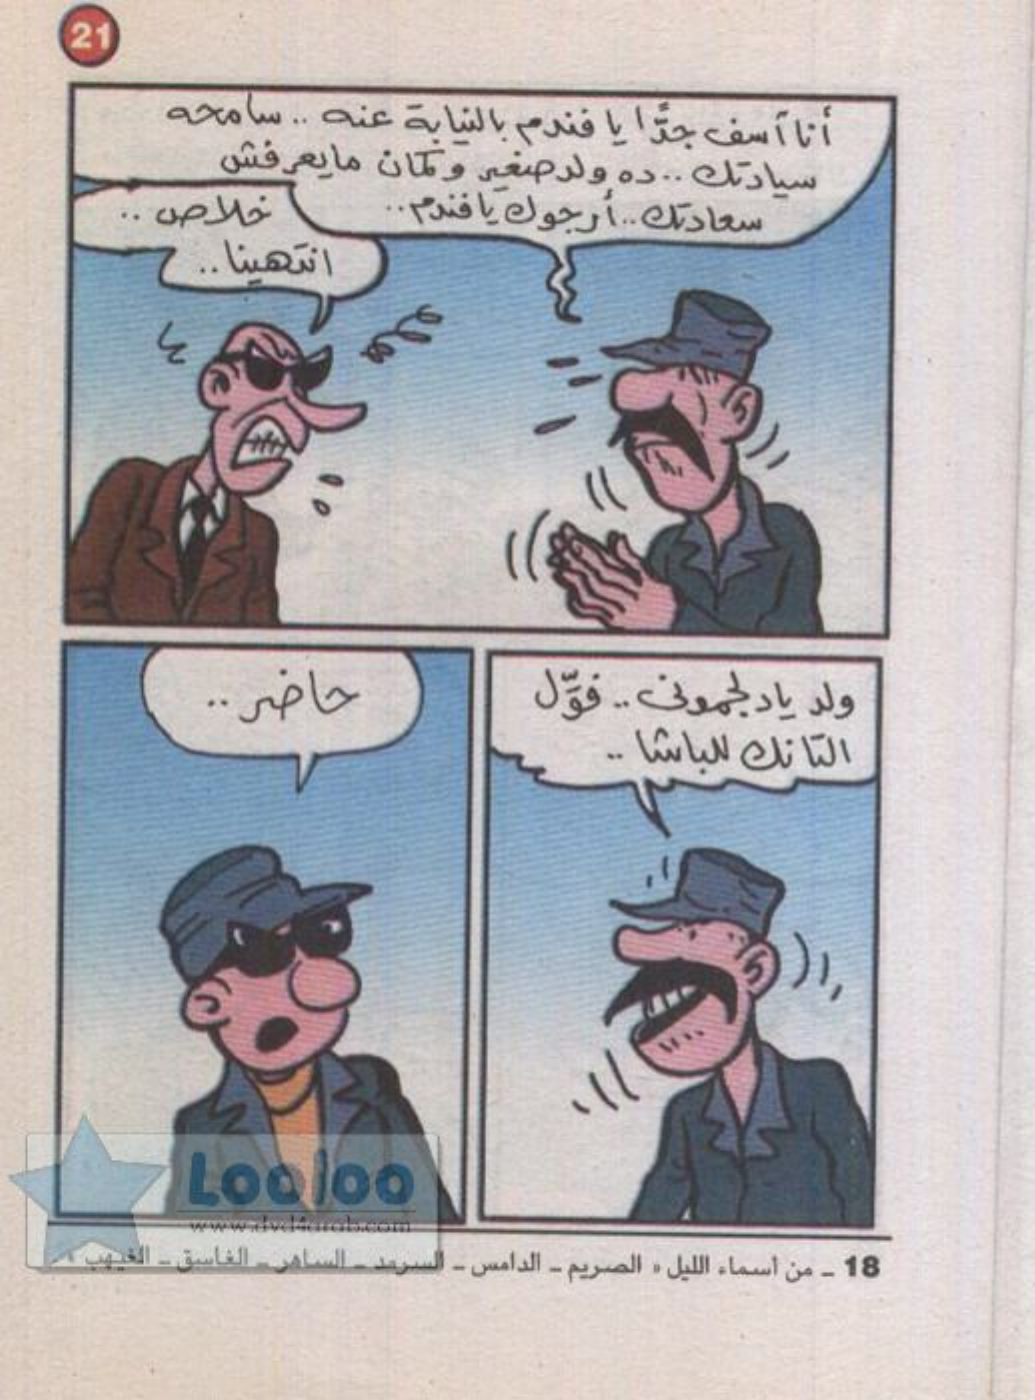 21
أنا آسف جدًّا يا فندم بالنيابة عنه .. سامحه
سيادتك .. ده ولد صغير وكمان مايعرفش
سعادتك .. أرجوك يا فندم ..
خلاص ..
انتهينا ..
ولد ياد لجموني .. فوِّل
التانك للباشا ..
حاضر ..
Looloo
www.dvd4arab.com
18 ـ من أسماء الليل « الصريم ـ الدامس ـ السرمد ـ الساهر ـ الغاسق ـ الغيهب »